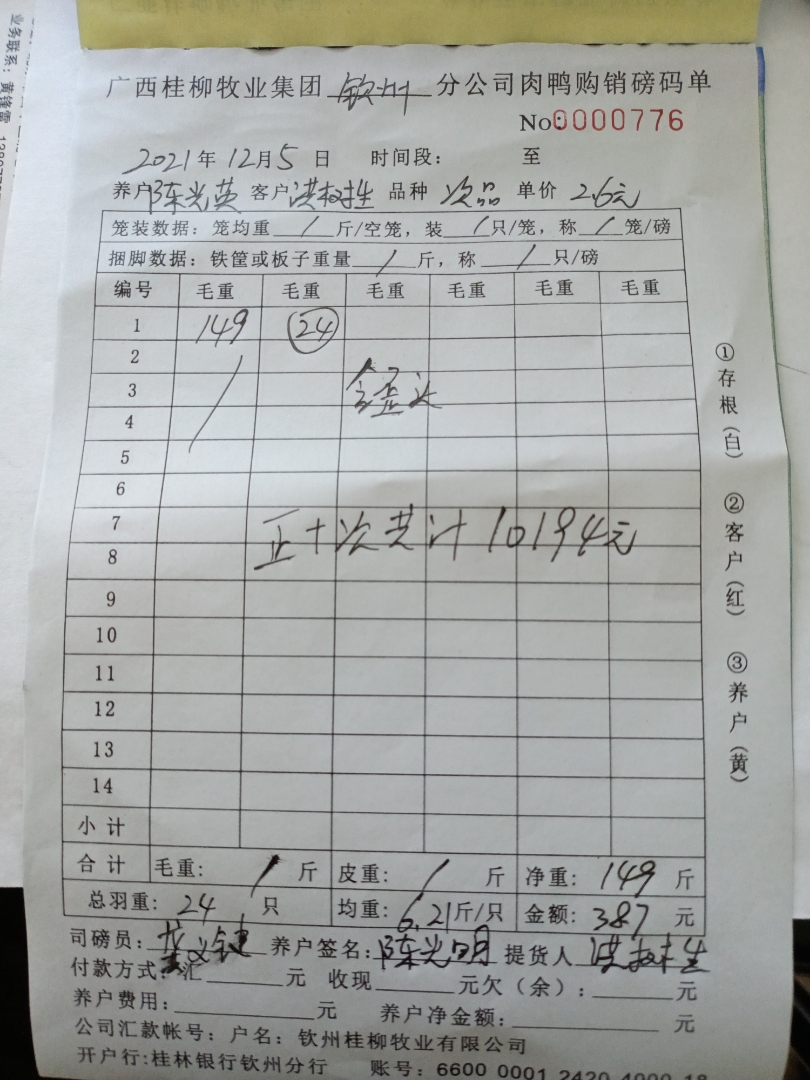 业务联系：黄锋雷
广西桂柳牧业集团 钦州 分公司肉鸭购销磅码单
No:0000776
2021年12月5日 时间段： 至
养户陈光英 客户洪树生 品种 次品 单价 2.6元
笼装数据：笼均重 / 斤/空笼，装 / 只/笼，称 / 笼/磅
捆脚数据：铁筐或板子重量 / 斤，称 / 只/磅
编号 毛重 毛重 毛重 毛重 毛重 毛重
1 149 24
2
3 全歪头
4
5
6
7 正十次共计10194元
8
9
10
11
12
13
14
小计
合计 毛重： / 斤 皮重： / 斤 净重： 149 斤
总羽重： 24 只 均重： 6.21斤/只 金额： 387 元
司磅员： 养户签名：陈光明 提货人 洪树生
付款方式：汇 元 收现 元欠（余）： 元
养户费用： 元 养户净金额： 元
公司汇款帐号：户名：钦州桂柳牧业有限公司
开户行:桂林银行钦州分行 账号：6600 0001 2420 4000 18
①存根（白） ②客户（红） ③养户（黄）